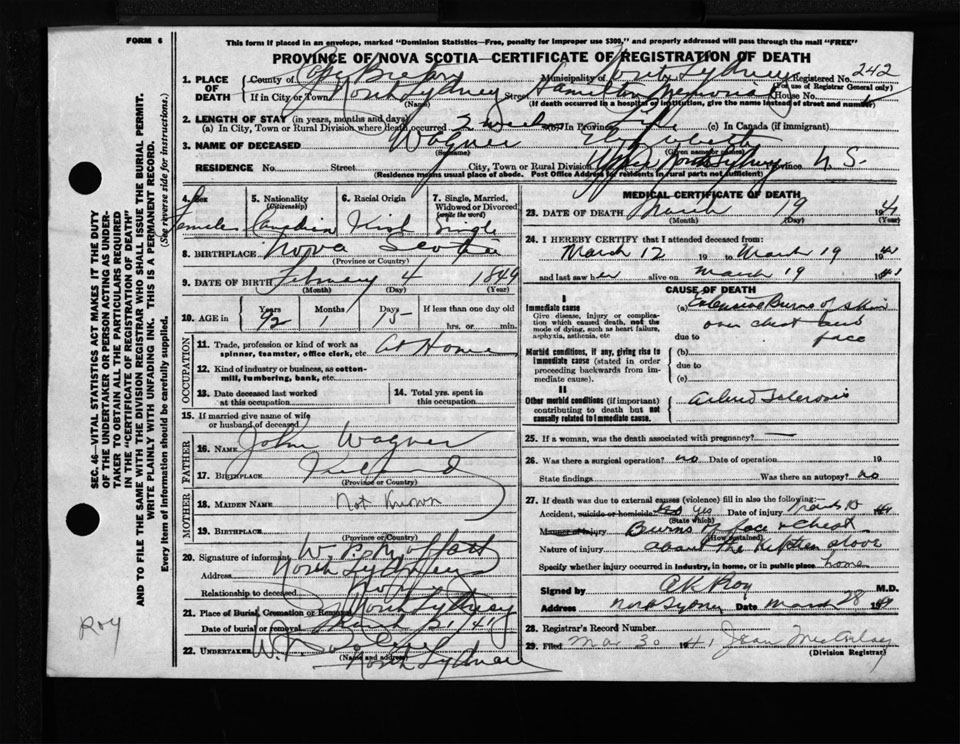 FORM 6
This form if placed in an envelope, marked "Dominion Statistics—Free, penalty for improper use $300," and properly addressed will pass through the mail "FREE"
PROVINCE OF NOVA SCOTIA—CERTIFICATE OF REGISTRATION OF DEATH
1. PLACE OF DEATH
County of Cape Breton Municipality of North Sydney Registered No. 242
(For use of Registrar General only)
If in City or Town North Sydney Street Hamilton Memorial House No.
(Name) (If death occurred in a hospital or institution, give the name instead of street and number)
2. LENGTH OF STAY (in years, months and days)
(a) In City, Town or Rural Division where death occurred 2 weeks (b) In Province Life (c) In Canada (if immigrant)
3. NAME OF DECEASED Wagner Elizabeth
(Surname) (Given name or names)
RESIDENCE No. Street City, Town or Rural Division Upper North Sydney Province N. S.
(Residence means usual place of abode. Post Office Address for residents in rural parts not sufficient)
4. Sex
Female
5. Nationality
(Citizenship)
Canadian
6. Racial Origin
Irish
7. Single, Married, Widowed or Divorced
(write the word)
Single
8. BIRTHPLACE Nova Scotia
(Province or Country)
9. DATE OF BIRTH February 4 1849
(Month) (Day) (Year)
10. AGE in Years Months Days If less than one day old
92 1 15 hrs. or min.
OCCUPATION
11. Trade, profession or kind of work as spinner, teamster, office clerk, etc. At Home
12. Kind of industry or business, as cotton-mill, lumbering, bank, etc.
13. Date deceased last worked at this occupation
14. Total yrs. spent in this occupation
15. If married give name of wife or husband of deceased
FATHER
16. NAME John Wagner
17. BIRTHPLACE
(Province or Country)
MOTHER
18. MAIDEN NAME Not Known
19. BIRTHPLACE
(Province or Country)
20. Signature of informant W. P. Moffatt
Address North Sydney
Relationship to deceased
21. Place of Burial, Cremation or Removal North Sydney
Date of burial or removal March 21/41
22. UNDERTAKER
(Name and address)
North Sydney
MEDICAL CERTIFICATE OF DEATH
23. DATE OF DEATH March 19 1941
(Month) (Day) (Year)
24. I HEREBY CERTIFY that I attended deceased from:
March 12 19 to March 19 1941
and last saw her alive on March 19 1941
CAUSE OF DEATH
I
Immediate cause
Give disease, injury or complication which caused death, not the mode of dying, such as heart failure, asphyxia, asthenia, etc
(a) Extensive Burns of skin
over chest and
due to face
Morbid conditions, if any, giving rise to immediate cause (stated in order proceeding backwards from immediate cause).
(b)
due to
(c)
II
Other morbid conditions (if important) contributing to death but not causally related to immediate cause.
25. If a woman, was the death associated with pregnancy? —
26. Was there a surgical operation? no Date of operation 19
State findings Was there an autopsy? no
27. If death was due to external causes (violence) fill in also the following:—
Accident, suicide or homicide Yes Date of injury March 10 1941
(State which)
Manner of injury Burns of face & chest
(How sustained)
Nature of injury about the kitchen stove
Specify whether injury occurred in industry, in home, or in public place. home
Signed by Roy M.D.
Address North Sydney Date March 28 1941
28. Registrar's Record Number
29. Filed Mar 30 1941 Jean
(Division Registrar)
SEC. 46—VITAL STATISTICS ACT MAKES IT THE DUTY
OF THE UNDERTAKER OR PERSON ACTING AS UNDER-
TAKER TO OBTAIN ALL THE PARTICULARS REQUIRED
IN THE "CERTIFICATE OF REGISTRATION OF DEATH"
AND TO FILE THE SAME WITH THE DIVISION REGISTRAR WHO SHALL ISSUE THE BURIAL PERMIT.
WRITE PLAINLY WITH UNFADING INK. THIS IS A PERMANENT RECORD.
Every item of Information should be carefully supplied. (See reverse side for instructions.)
Roy